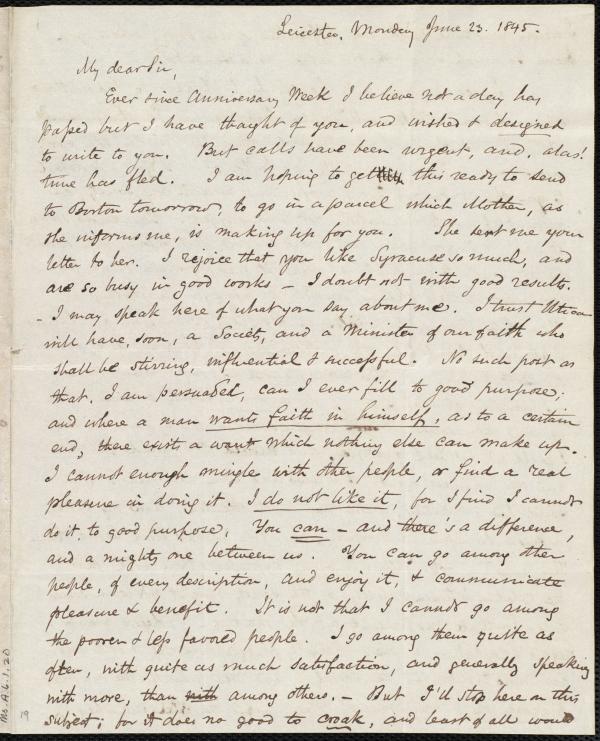 Leicester, Monday June 23. 1845.
My dear Sir,
Ever since Anniversary Week I believe not a day has
passed but I have thought of you, and wished & designed
to write to you. But calls have been urgent, and, alas!
time has fled. I am hoping to get this ready to send
to Boston tomorrow, to go in a parcel which Mother, as
she informs me, is making up for you. She sent me your
letter to her. I rejoice that you like Syracuse so much, and
are so busy in good works – I doubt not with good results.
– I may speak here of what you say about me. I trust Utica
will have, soon, a Society, and a Minister of our faith who
shall be stirring, influential & successful. No such post as
that, I am persuaded, can I ever fill to good purpose;
and where a man wants faith in himself, as to a certain
end, there exists a want which nothing else can make up.
I cannot enough mingle with other people, or find a real
pleasure in doing it. I do not like it, for I find I cannot
do it, to good purpose. You can – and there's a difference,
and a mighty one between us. You can go among other
people, of every description, and enjoy it, & communicate
pleasure & benefit. It is not that I cannot go among
the poorer & less favored people. I go among them quite as
often, with quite as much satisfaction, and generally speaking
with more, than with among others. – But I'll stop here on this
subject; for it does no good to croak, and least of all would
Ms. A. 6. 1. 20
19